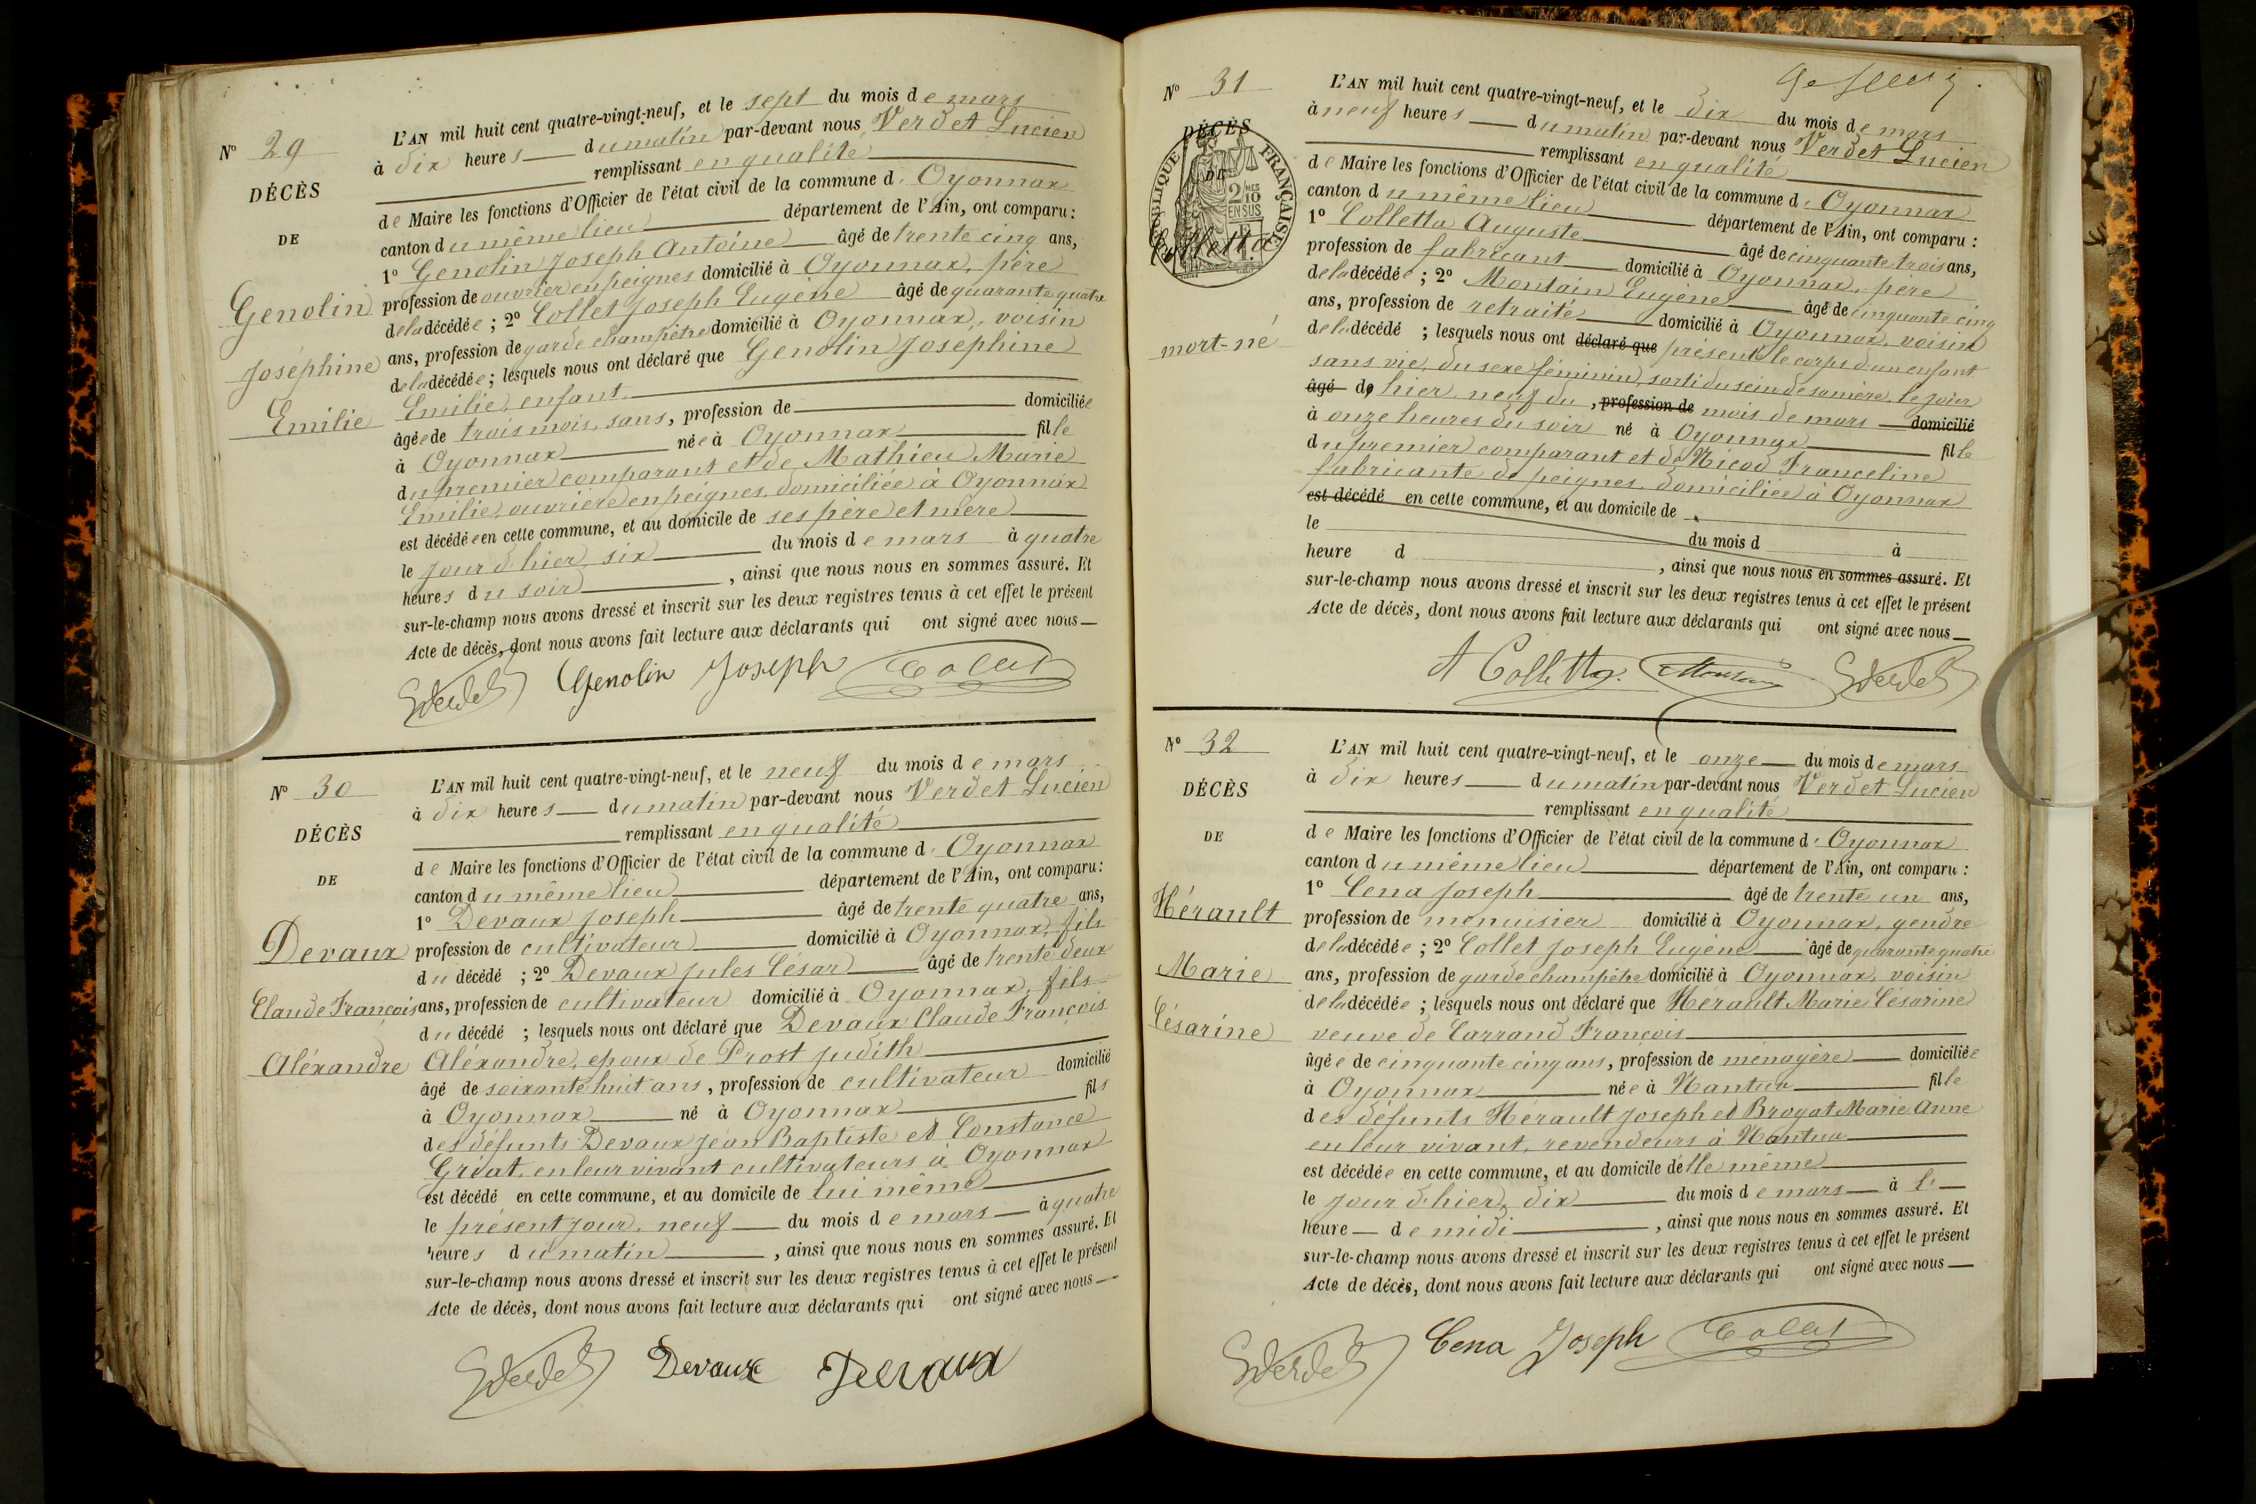 N° 29
DÉCÈS
DE
Genolin
Joséphine
Emilie
L'AN mil huit cent quatre-vingt-neuf, et le sept du mois de mars
à dix heures du matin par-devant nous Verdet Lucien
remplissant en qualité
de Maire les fonctions d'Officier de l'état civil de la commune d'Oyonnax
canton du même lieu département de l'Ain, ont comparu :
1° Genolin Joseph Antoine âgé de trente cinq ans,
profession de ouvrier en peignes domicilié à Oyonnax, père
de la décédée ; 2° Collet Joseph Eugène âgé de quarante quatre
ans, profession de garde champêtre domicilié à Oyonnax, voisin
de la décédée ; lesquels nous ont déclaré que Genolin Joséphine
Emilie, enfant
âgée de trois mois, sans, profession de domiciliée
à Oyonnax née à Oyonnax fille
du premier comparant et de Mathieu Marie
Emilie, ouvrière en peignes, domiciliée à Oyonnax
est décédée en cette commune, et au domicile de ses père et mère
le jour d'hier, six du mois de mars à quatre
heures du soir, ainsi que nous nous en sommes assuré. Et
sur-le-champ nous avons dressé et inscrit sur les deux registres tenus à cet effet le présent
Acte de décès, dont nous avons fait lecture aux déclarants qui ont signé avec nous
Verdet Genolin Joseph Collet
N° 30
DÉCÈS
DE
Devaux
Claude François
Aléxandre
L'AN mil huit cent quatre-vingt-neuf, et le neuf du mois de mars
à dix heures du matin par-devant nous Verdet Lucien
remplissant en qualité
de Maire les fonctions d'Officier de l'état civil de la commune d'Oyonnax
canton du même lieu département de l'Ain, ont comparu :
1° Devaux Joseph âgé de trente quatre ans,
profession de cultivateur domicilié à Oyonnax, fils
du décédé ; 2° Devaux Jules César âgé de trente deux
ans, profession de cultivateur domicilié à Oyonnax, fils
du décédé ; lesquels nous ont déclaré que Devaux Claude François
Aléxandre, époux de Prost Judith
âgé de soixante huit ans, profession de cultivateur domicilié
à Oyonnax né à Oyonnax fils
des défunts Devaux Jean Baptiste et Constance
Gréat, en leur vivant cultivateurs à Oyonnax
est décédé en cette commune, et au domicile de lui même
le présent jour, neuf du mois de mars à quatre
heures du matin, ainsi que nous nous en sommes assuré. Et
sur-le-champ nous avons dressé et inscrit sur les deux registres tenus à cet effet le présent
Acte de décès, dont nous avons fait lecture aux déclarants qui ont signé avec nous
Verdet Devaux Devaux
N° 31
DÉCÈS
DE
RÉPUBLIQUE FRANÇAISE
2 MES
10
EN SUS
Colletta
mort-né
L'AN mil huit cent quatre-vingt-neuf, et le dix du mois de mars
à neuf heures du matin par-devant nous Verdet Lucien
remplissant en qualité
de Maire les fonctions d'Officier de l'état civil de la commune d'Oyonnax
canton du même lieu département de l'Ain, ont comparu :
1° Colletta Auguste âgé de cinquante trois ans,
profession de fabricant domicilié à Oyonnax, père
de la décédée ; 2° Montain Eugène âgé de cinquante cinq
ans, profession de retraité domicilié à Oyonnax, voisin
de la décédé ; lesquels nous ont déclaré que présenté le corps d'un enfant
sans vie, du sexe féminin, sorti du sein de sa mère, le jour
âgé d' hier, neuf du, profession de mois de mars domicilié
à onze heures du soir né à Oyonnax fille
du premier comparant et de Nicod Franceline
fabricante de peignes, domiciliée à Oyonnax
est décédé en cette commune, et au domicile de
le du mois d à
heure d, ainsi que nous nous en sommes assuré. Et
sur-le-champ nous avons dressé et inscrit sur les deux registres tenus à cet effet le présent
Acte de décès, dont nous avons fait lecture aux déclarants qui ont signé avec nous
A Colletta Montain Verdet
N° 32
DÉCÈS
DE
Hérault
Marie
Césarine
L'AN mil huit cent quatre-vingt-neuf, et le onze du mois de mars
à dix heures du matin par-devant nous Verdet Lucien
remplissant en qualité
de Maire les fonctions d'Officier de l'état civil de la commune d'Oyonnax
canton du même lieu département de l'Ain, ont comparu :
1° Cena Joseph âgé de trente un ans,
profession de menuisier domicilié à Oyonnax, gendre
de la décédée ; 2° Collet Joseph Eugène âgé de quarante quatre
ans, profession de garde champêtre domicilié à Oyonnax, voisin
de la décédée ; lesquels nous ont déclaré que Hérault Marie Césarine
veuve de Carrand François
âgée de cinquante cinq ans, profession de ménagère domiciliée
à Oyonnax née à Nantua fille
des défunts Hérault Joseph et Brogat Marie Anne
en leur vivant, revendeurs à Nantua
est décédée en cette commune, et au domicile d'elle même
le jour d'hier, dix du mois de mars à l'
heure de midi, ainsi que nous nous en sommes assuré. Et
sur-le-champ nous avons dressé et inscrit sur les deux registres tenus à cet effet le présent
Acte de décès, dont nous avons fait lecture aux déclarants qui ont signé avec nous
Verdet Cena Joseph Collet